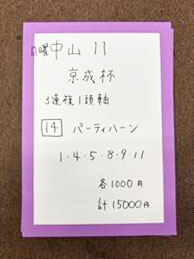 日曜中山11
京成杯
3連複1頭軸
14 パーティハーン
1・4・5・8・9・11
各1000円
計15000円